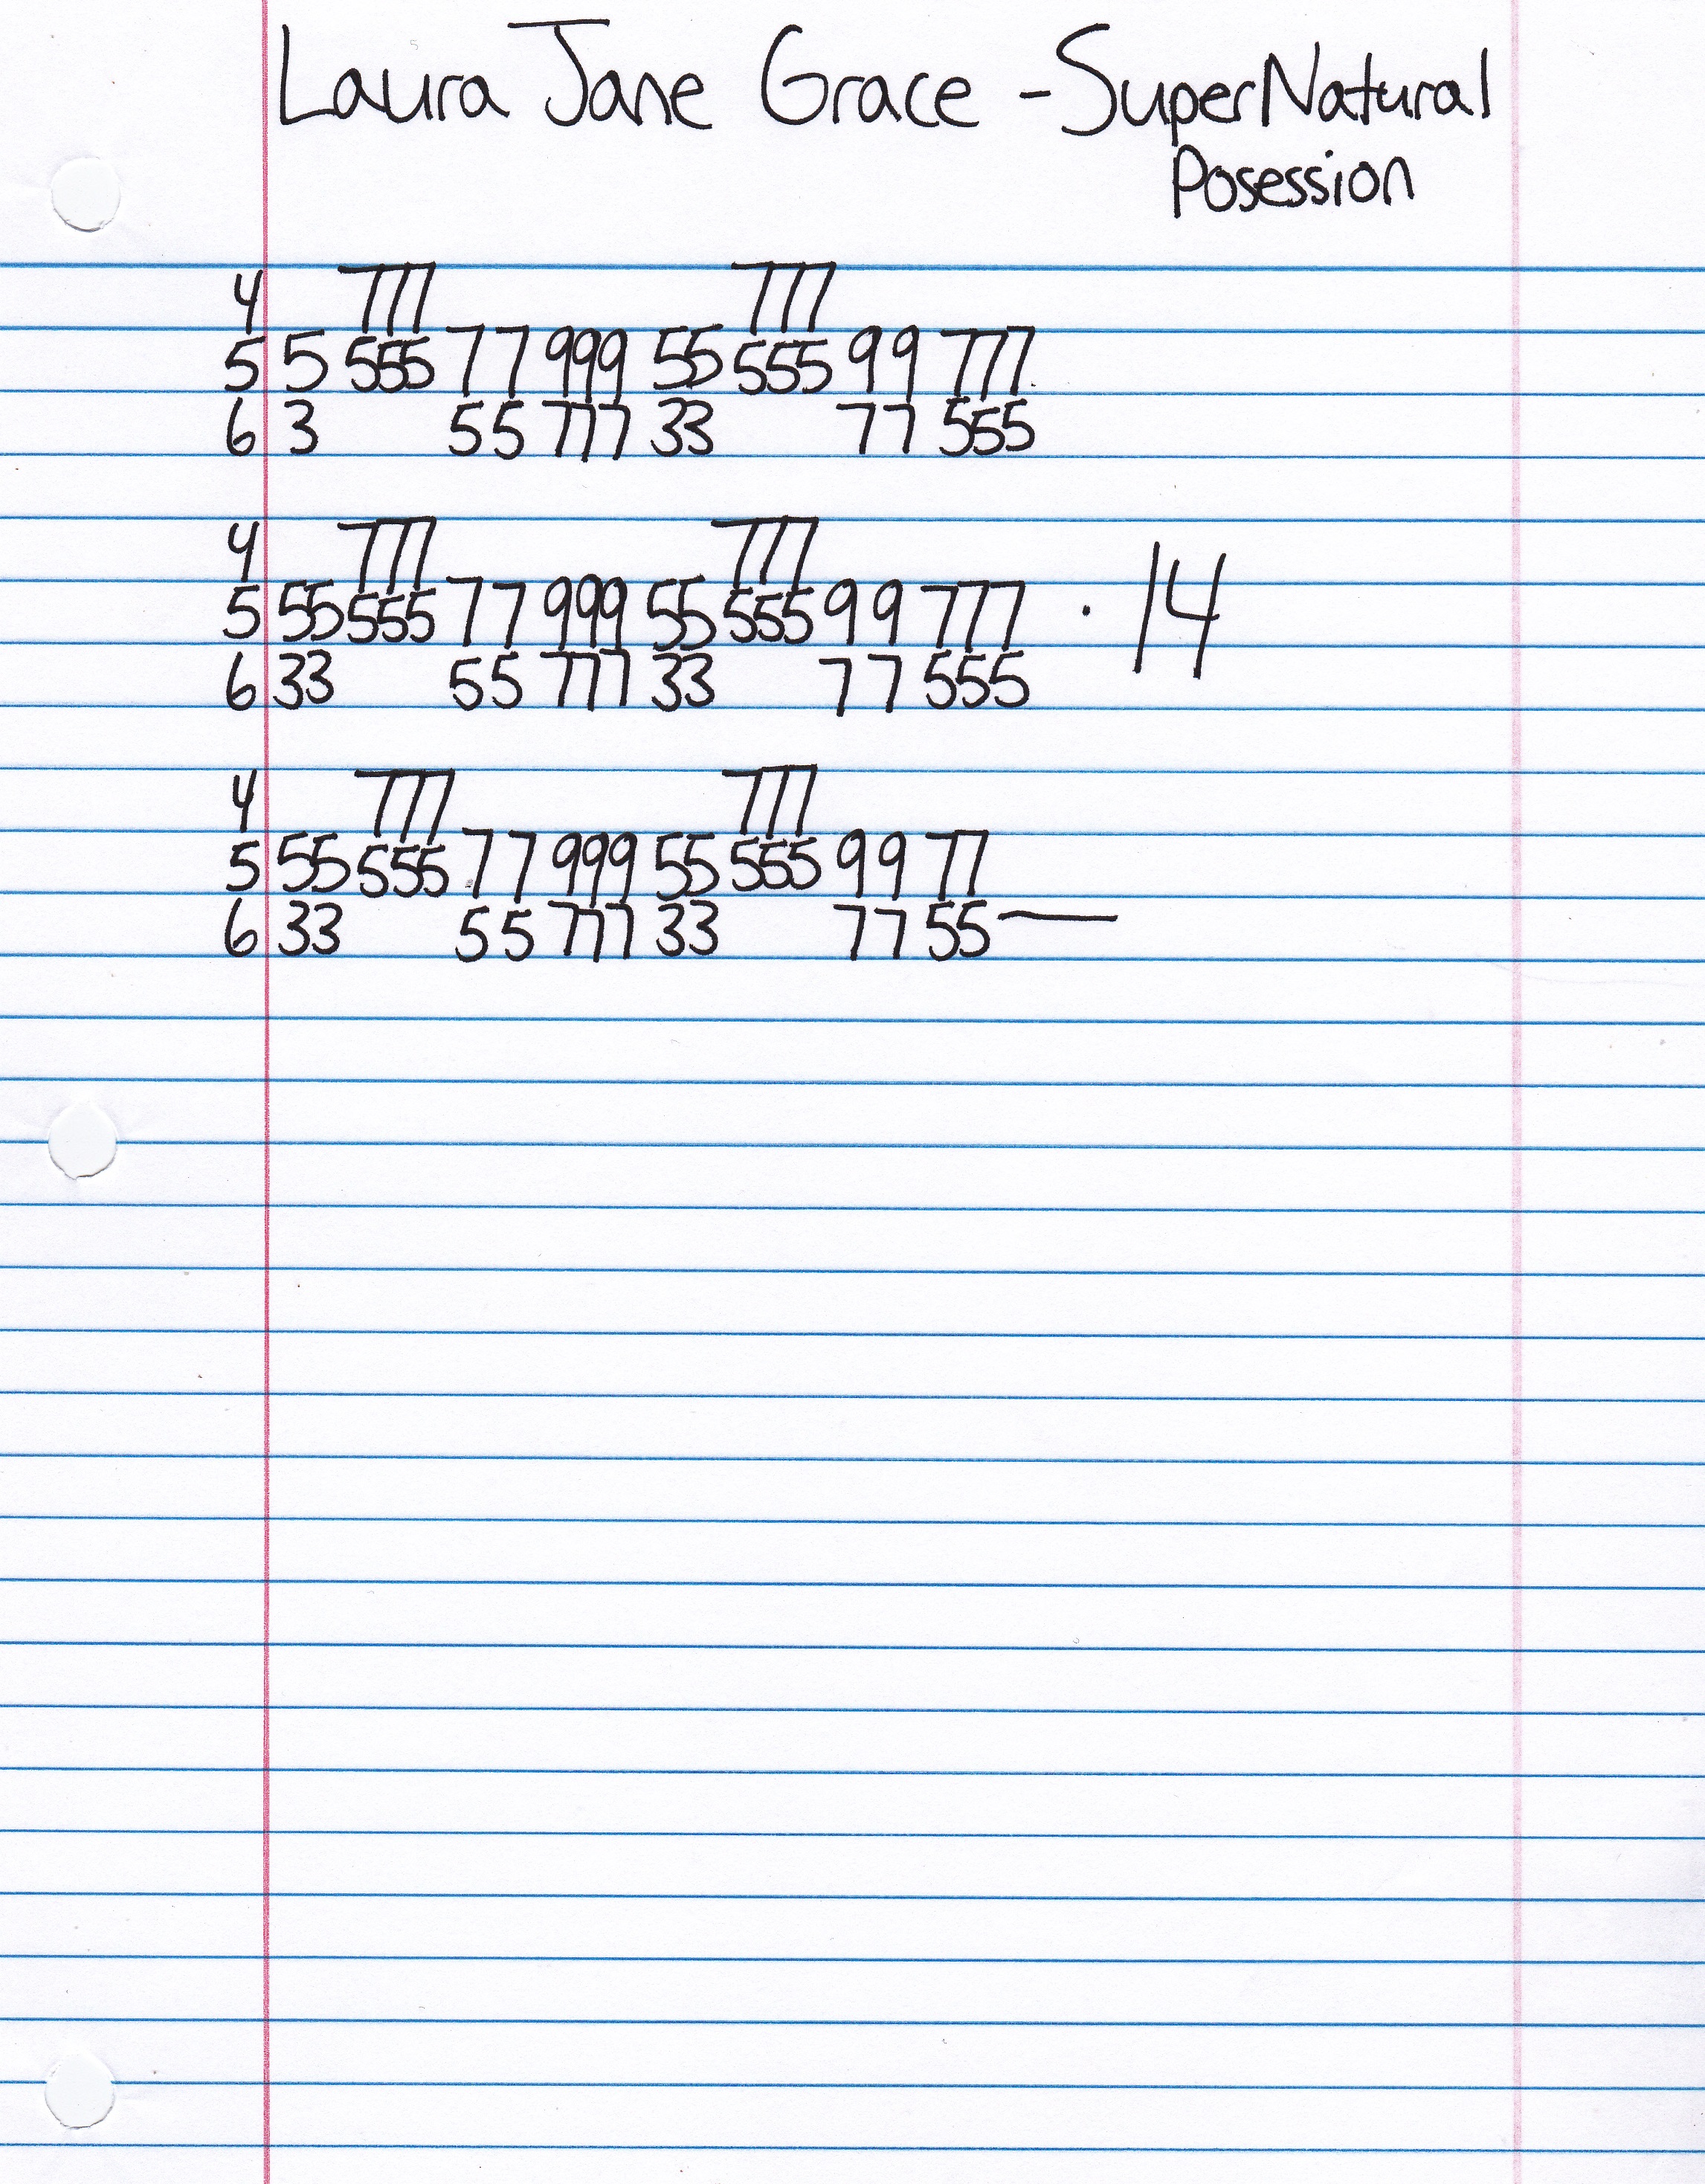 Laura Jane Grace - SuperNatural
Posession
4 777 777
5 5 555 77 999 55 555 99 777
6 3 55 777 33 77 555
4 777 777
5 55 555 77 999 55 555 99 777 · 14
6 33 55 777 33 77 555
4 777 777
5 55 555 77 999 55 555 99 77
6 33 55 777 33 77 55—